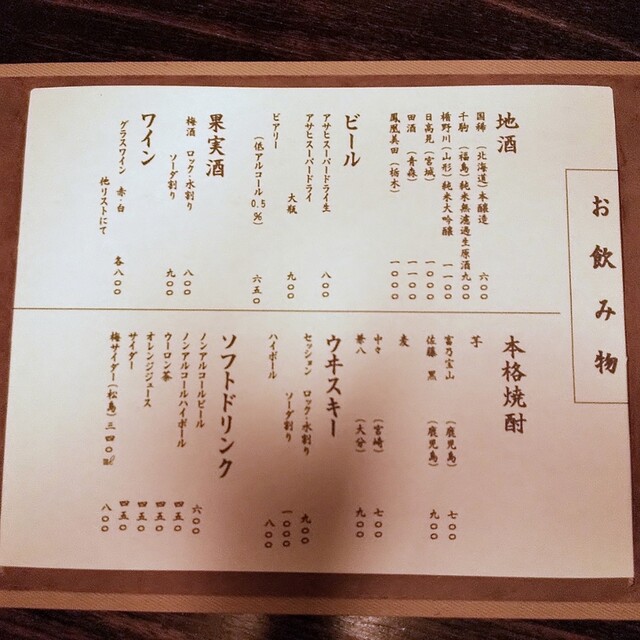 お飲み物
地酒
国稀 (北海道) 本醸造 六〇〇
千駒 (福島) 純米無濾過生原酒 九〇〇
楯野川 (山形) 純米大吟醸 一一〇〇
日高見 (宮城) 一〇〇〇
田酒 (青森) 一一〇〇
鳳凰美田 (栃木) 一〇〇〇
ビール
アサヒスーパードライ生 八〇〇
アサヒスーパードライ 大瓶 九〇〇
ビアリー (低アルコール0.5%) 六五〇
果実酒
梅酒 ロック・水割り 八〇〇
ソーダ割り 九〇〇
ワイン
グラスワイン 赤・白 各八〇〇
他リストにて
本格焼酎
芋
富乃宝山 (鹿児島) 七〇〇
佐藤 黒 (鹿児島) 九〇〇
麦
中々 (宮崎) 七〇〇
兼八 (大分) 九〇〇
ウヰスキー
セッション ロック・水割り 九〇〇
ソーダ割り 一〇〇〇
ハイボール 八〇〇
ソフトドリンク
ノンアルコールビール 六〇〇
ノンアルコールハイボール 四五〇
ウーロン茶 四五〇
オレンジジュース 四五〇
サイダー 四五〇
梅サイダー (松島) 三四〇㎖ 八〇〇